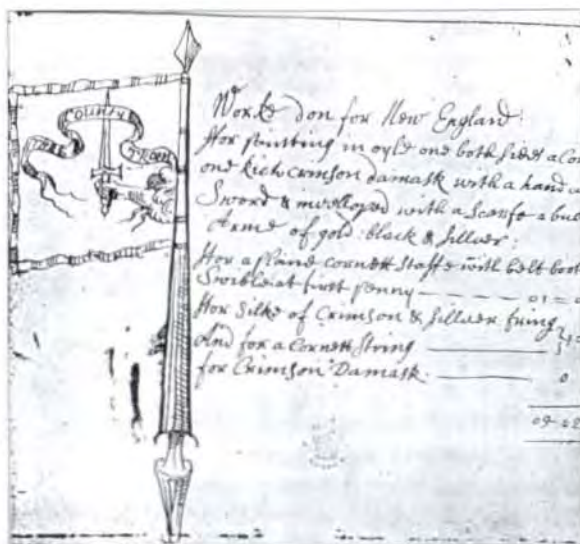 THREE COUNTY TROOP
Worke don for New England:
ffor painting in oyle one both sides a Cor
one rich crimson damask with a hand a
Sword & invelloped with a scarfe a bou
Arme of gold: black & sillver:
ffor a plaine cornett staffe with belt boot
Swible at first penny — 01 =
ffor silke of Crimson & sillver fring
And for a Cornett string
for Crimson Damask. — 0
09-02